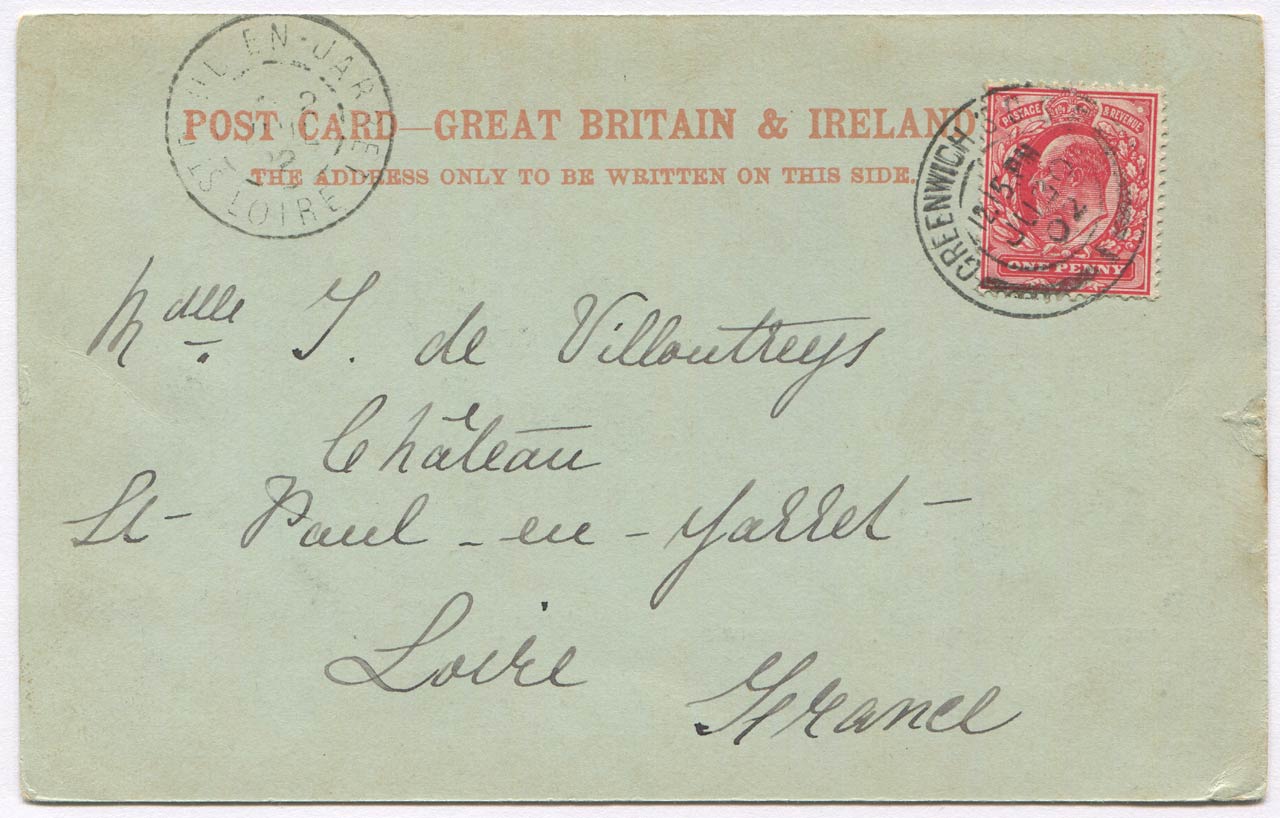 POST CARD—GREAT BRITAIN & IRELAND
THE ADDRESS ONLY TO BE WRITTEN ON THIS SIDE.
EN-JAREZ
LOIRE
POSTAGE & REVENUE
ONE PENNY
GREENWICH
12.15 PM
02
Mdlle J. de Villoutreys
Château
St Paul-en-Jarret
Loire France